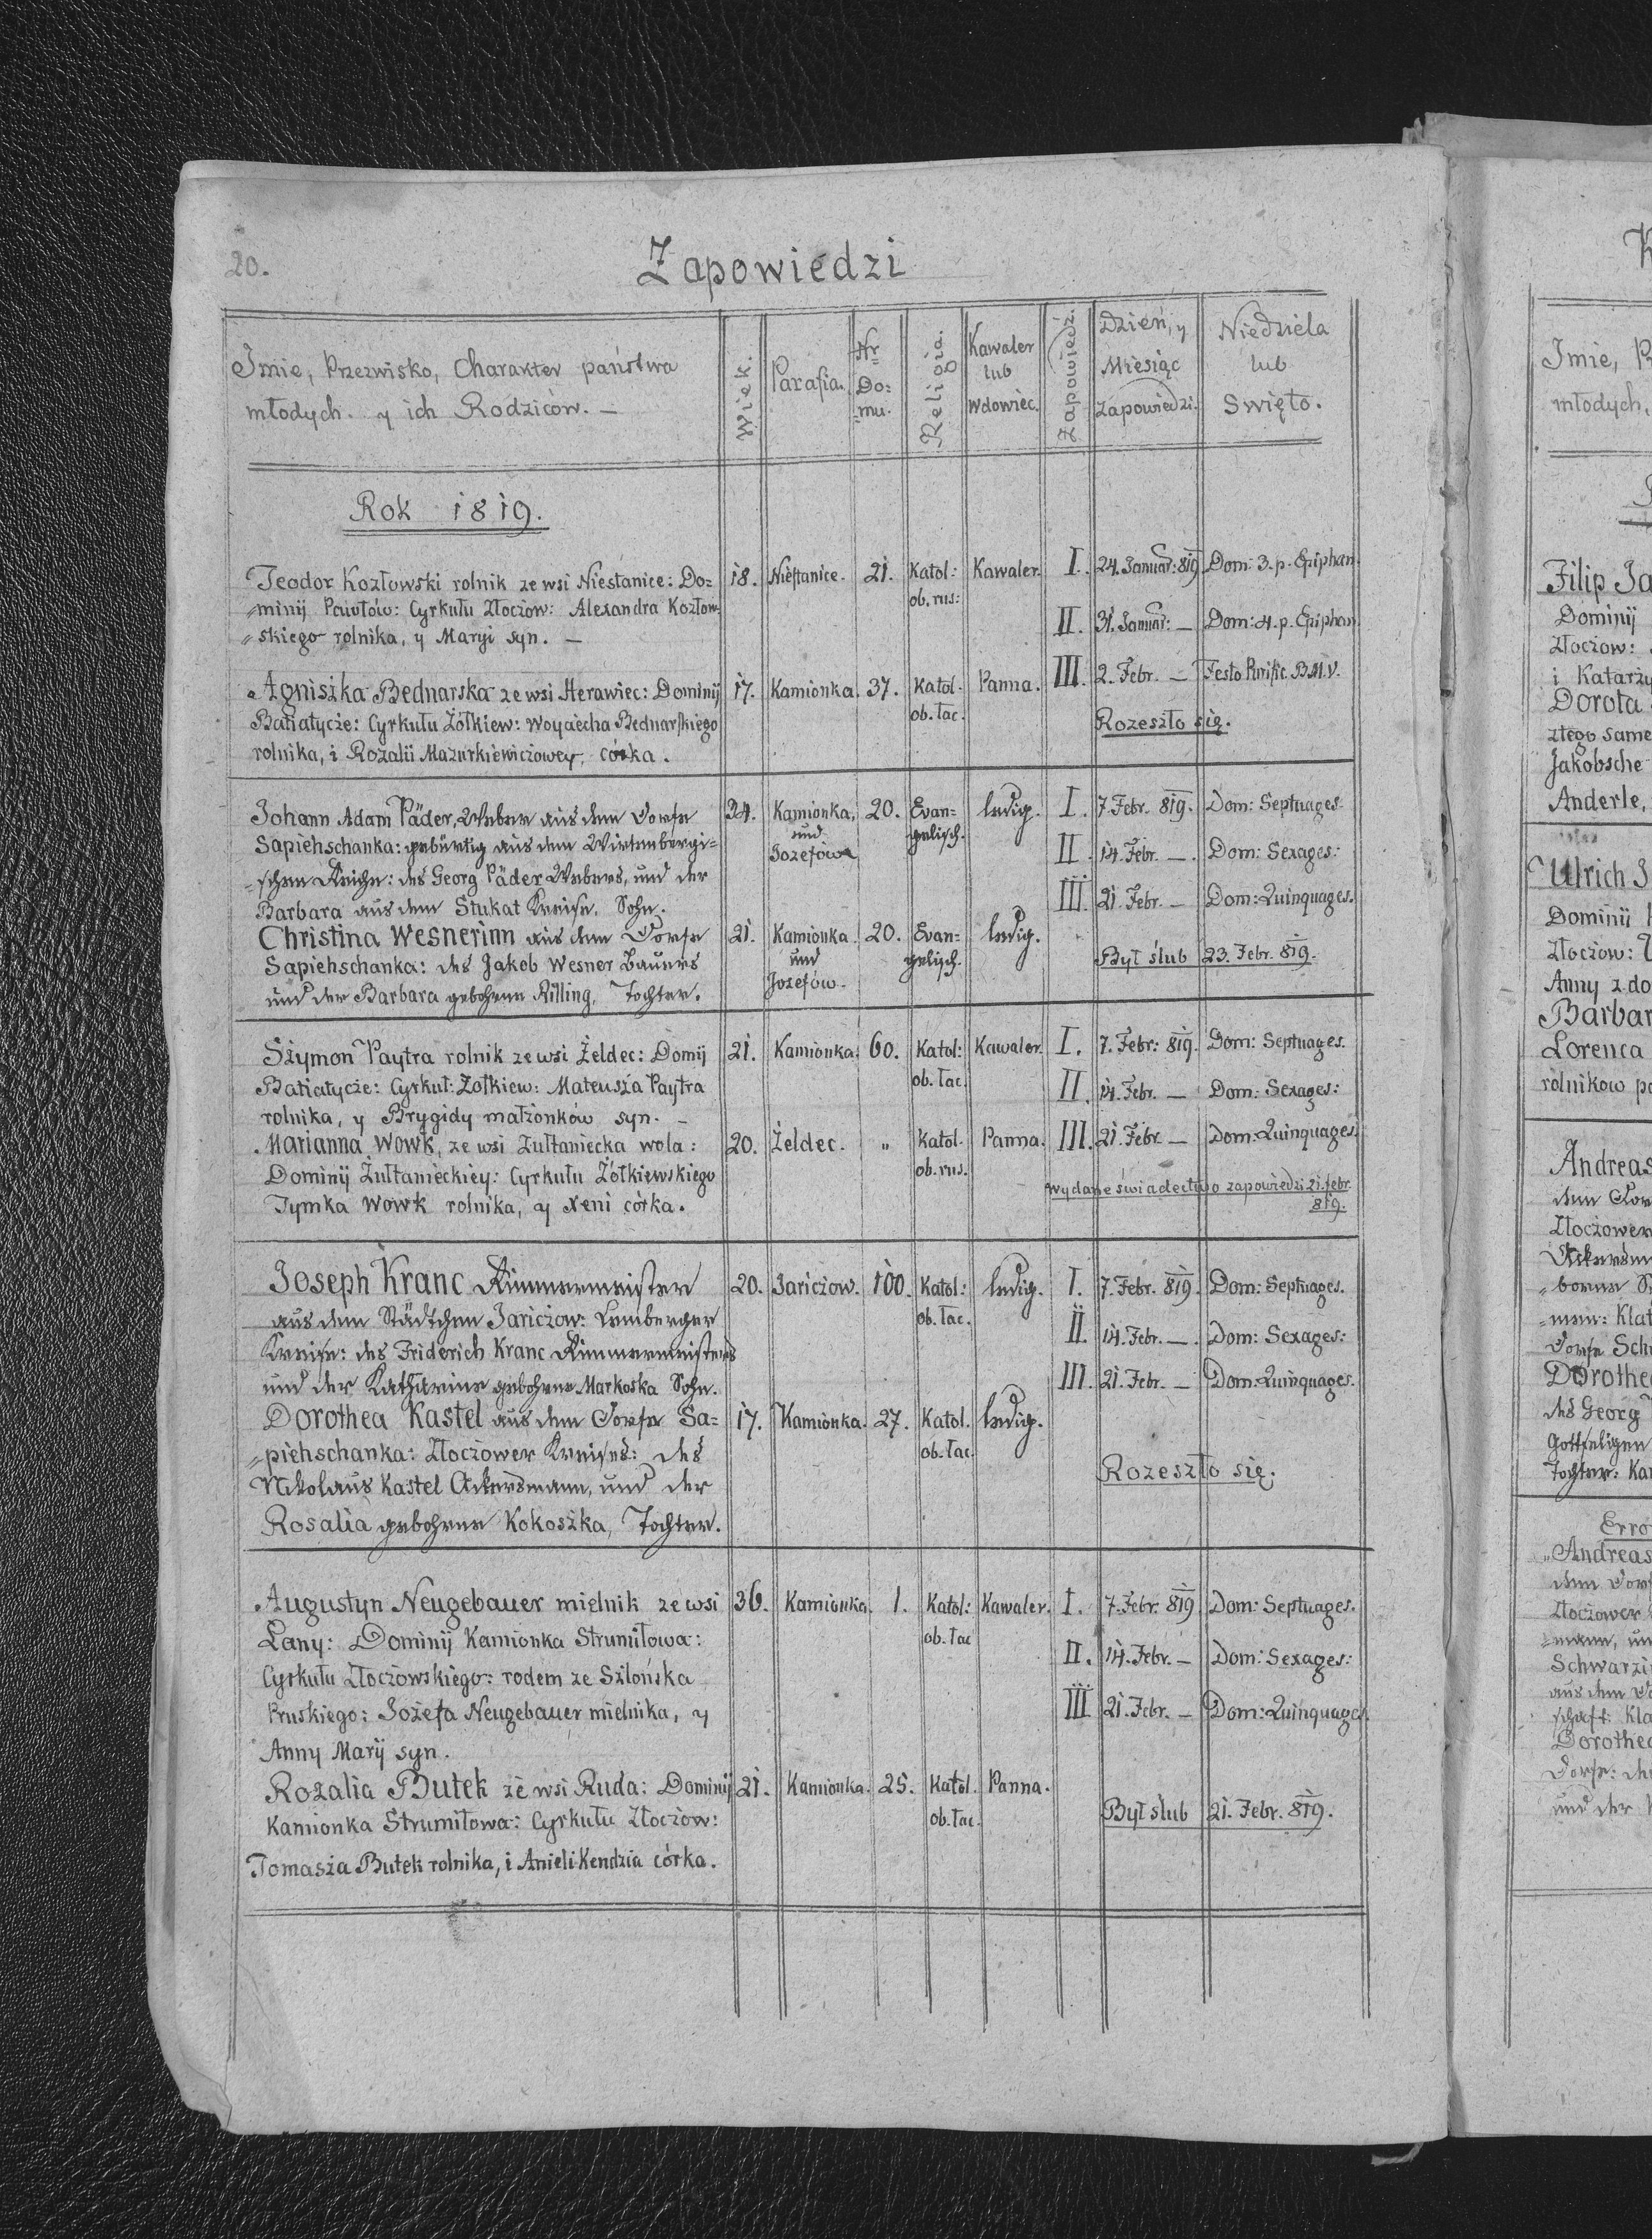 20.
Zapowiedzi
Imie, Przezwisko, Charakter państwa
młodych. y ich Rodziców. —
Wiek.
Parafia.
Nr
Do=
=mu.
Religia.
Kawaler
lub
Wdowiec.
Zapowiedź.
Dzień, y
Miesiąc
Zapowiedzi.
Niedziela
lub
Swięto.
Rok 1819.
Teodor Kozłowski rolnik ze wsi Niestanice: Do= 18. Niestanice. 21. Katol: Kawaler. I. 24. Januar: 819 Dom: 3. p. Epiphan.
=minij Pawłów: Cyrkułu Złoczow: Alexandra Kozłow- ob. rus: II. 31. Januar: — Dom: 4. p. Epiphan.
=skiego rolnika, y Maryi syn. —
III. 2. Febr. — Festo Purific. B.M.V.
Agniszka Bednarska ze wsi Herawiec: Dominij 17. Kamionka. 37. Katol. Panna.
Batiatycze: Cyrkułu Żółkiew: Woyciecha Bednarskiego ob. łac. Rozeszło się.
rolnika, i Rozalii Mazurkiewiczowey, córka.
Johann Adam Päder, Weber aus dem Dorfe 24. Kamionka, 20. Evan= ledig. I. 7. Febr. 819. Dom: Septuages.
Sapiehschanka: gebürtig aus dem Wirtenbergi= und gelisch.
Jozefów II. 14. Febr. —. Dom: Sexages:
=schen Reiche: des Georg Päder Webers, und der III. 21. Febr. — Dom: Quinquages.
Barbara aus dem Stukat Kreise, Sohn.
Christina Wesnerinn aus dem Dorfe 21. Kamionka 20. Evan= ledig.
Sapiehschanka: des Jakob Wesner Bauers und gelisch. Był ślub 23. Febr. 819.
und der Barbara gebohrne Rilling, Tochter. Jozefów.
Szymon Paytra rolnik ze wsi Żeldec: Domij 21. Kamionka. 60. Katol: Kawaler. I. 7. Febr: 819. Dom: Septuages.
Batiatycze: Cyrkuł: Zołkiew: Mateusza Paytra ob. łac. II. 14. Febr. — Dom: Sexages:
rolnika, y Brygidy małżonków syn. —
Marianna Wowk, ze wsi Zułtaniecka wola: 20. Żeldec. " Katol. Panna. III. 21. Febr. — Dom: Quinquages.
Dominij Żułtanieckiey: Cyrkułu Żółkiewskiego ob. rus. wydane świadectwo zapowiedzi 21. febr.
819.
Tymka Wowk rolnika, y Xeni córka.
Joseph Kranc Zimmermeister 20. Jariczow. 100. Katol: ledig. I. 7. Febr. 819. Dom: Septuages.
aus dem Städtchen Jariczow: Lemberger ob. łac. II. 14. Febr. —. Dom: Sexages:
Kreise: des Friderich Kranc Zimmermeisters
und der Katharine gebohrne Markoska Sohn. III. 21. Febr. — Dom: Quinquages.
Dorothea Kastel aus dem Dorfe Sa= 17. Kamionka. 27. Katol. ledig.
=piehschanka: Złoczower Kreises: des ob. łac. Rozeszło się.
Nikolaus Kastel Ackersmann, und der
Rosalia gebohrne Kokoszka, Tochter.
Augustyn Neugebauer mielnik ze wsi 36. Kamionka. 1. Katol: Kawaler. I. 7. Febr. 819 Dom: Septuages.
Łany: Dominij Kamionka Strumiłowa: ob. łac II. 14. Febr. — Dom: Sexages:
Cyrkułu Złoczowskiego: rodem ze Szlońska
Pruskiego: Jożefa Neugebauer mielnika, y III 21. Febr. — Dom: Quinquages.
Anny Marij syn.
Rozalia Butek ze wsi Ruda: Dominij 21. Kamionka. 25. Katol. Panna.
Kamionka Strumiłowa: Cyrkułu Złoczow: ob. łac. Był ślub 21. Febr. 819.
Tomasza Butek rolnika, i Anieli Kendzia córka.
Imie, P
młodych,
Filip Ja
Dominij
Złoczow:
i Katarzy
Dorota
ztego same
Jakobsche
Anderle,
Ulrich J
Dominij
Złoczow:
Anny z do
Barbar
Lorenca
rolnikow po
Andreas
dem Dor
Złoczower
Ackersm
=borne S
=men: Klat
Dorfe Sch
Dorothe
des Georg
Gottseligen
Tochter: Ka
Erro
Andreas
dem Dorf
Złoczower
=mann, un
Schwarzi
aus dem D
schaft: Kla
Dorothea
Dorfe: de
und der